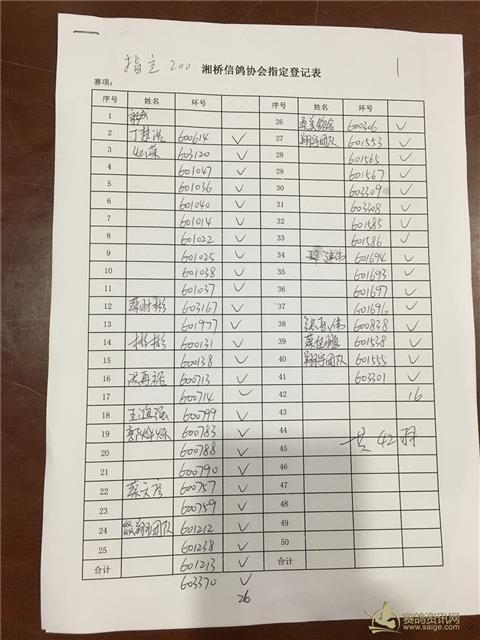 指定 200 湘桥信鸽协会指定登记表 1
赛项：
序号 姓名 环号 序号 姓名 环号
1 26 600306 ✓
2 600614 ✓ 27 翔宇团队 601553 ✓
3 603120 ✓ 28 601565 ✓
4 601047 ✓ 29 601567 ✓
5 601036 ✓ 30 603309 ✓
6 601040 ✓ 31 603308 ✓
7 601014 ✓ 32 601585 ✓
8 601022 ✓ 33 601586 ✓
9 601025 ✓ 34 601694 ✓
10 601038 ✓ 35 601693 ✓
11 601037 ✓ 36 601697 ✓
12 蔡财彬 603167 ✓ 37 601696 ✓
13 601977 ✓ 38 600838 ✓
14 彬彬 600131 ✓ 39 601538 ✓
15 600138 ✓ 40 翔宇团队 601555 ✓
16 洪再裕 600713 ✓ 41 603301 ✓
17 600714 ✓ 42 16
18 王鸿强 600799 ✓ 43
19 600783 ✓ 44
20 600788 ✓ 45 共42羽
21 600790 ✓ 46
22 600757 ✓ 47
23 600759 ✓ 48
24 601212 ✓ 49
25 601238 ✓ 50
合计 601213 ✓ 合计
603370 ✓
26
赛鸽资讯网
www.saige.com